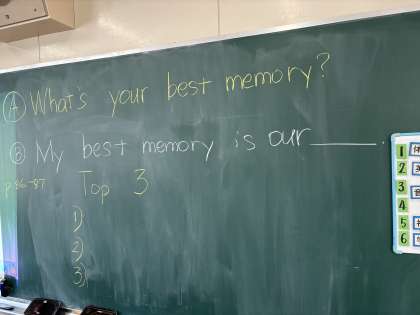 Ⓐ What's your best memory?
Ⓑ My best memory is our ____.
P.86-87
Top 3
1)
2)
3)
1
2
3
4
5
6